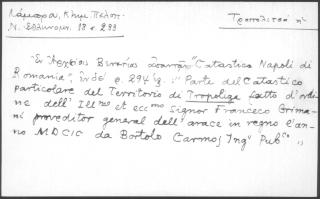 Λάμπρα, Κλημ. Πελοπ.
Ν. Ἑλληνομ. 18 σ. 293
Τροπολιτσά ἡ
Ἐν Ἀρχείοις Βενετίας "Catastico Napoli di
Romania", σ. 294 "Parte del Catastico
particolare del Territorio di Tropoliza fatto d'ordi
ne dell' Ill^mo et ecc^mo signor Francesco Grima
ni proveditor general dell' armi in regno l'an
no MDCIC da Bortolo Carmoy Ing^r Pub^co "